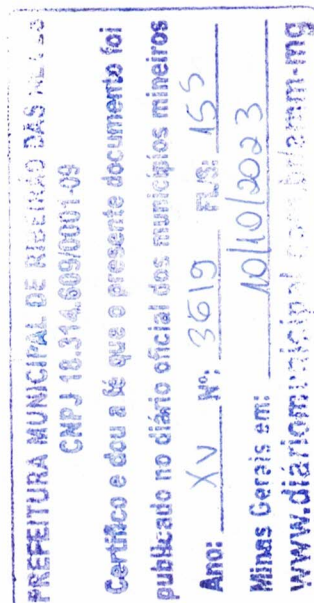 PREFEITURA MUNICIPAL DE RIBEIRÃO DAS NEVES
CNPJ 18.314.609/0001-09
Certifico e dou a fé que o presente documento foi
publicado no diário oficial dos municípios mineiros
Ano: XV Nº: 3619 FLS: 155
Minas Gerais em: 10/10/2023
www.diáriomunicipal.com.br/amm-mg